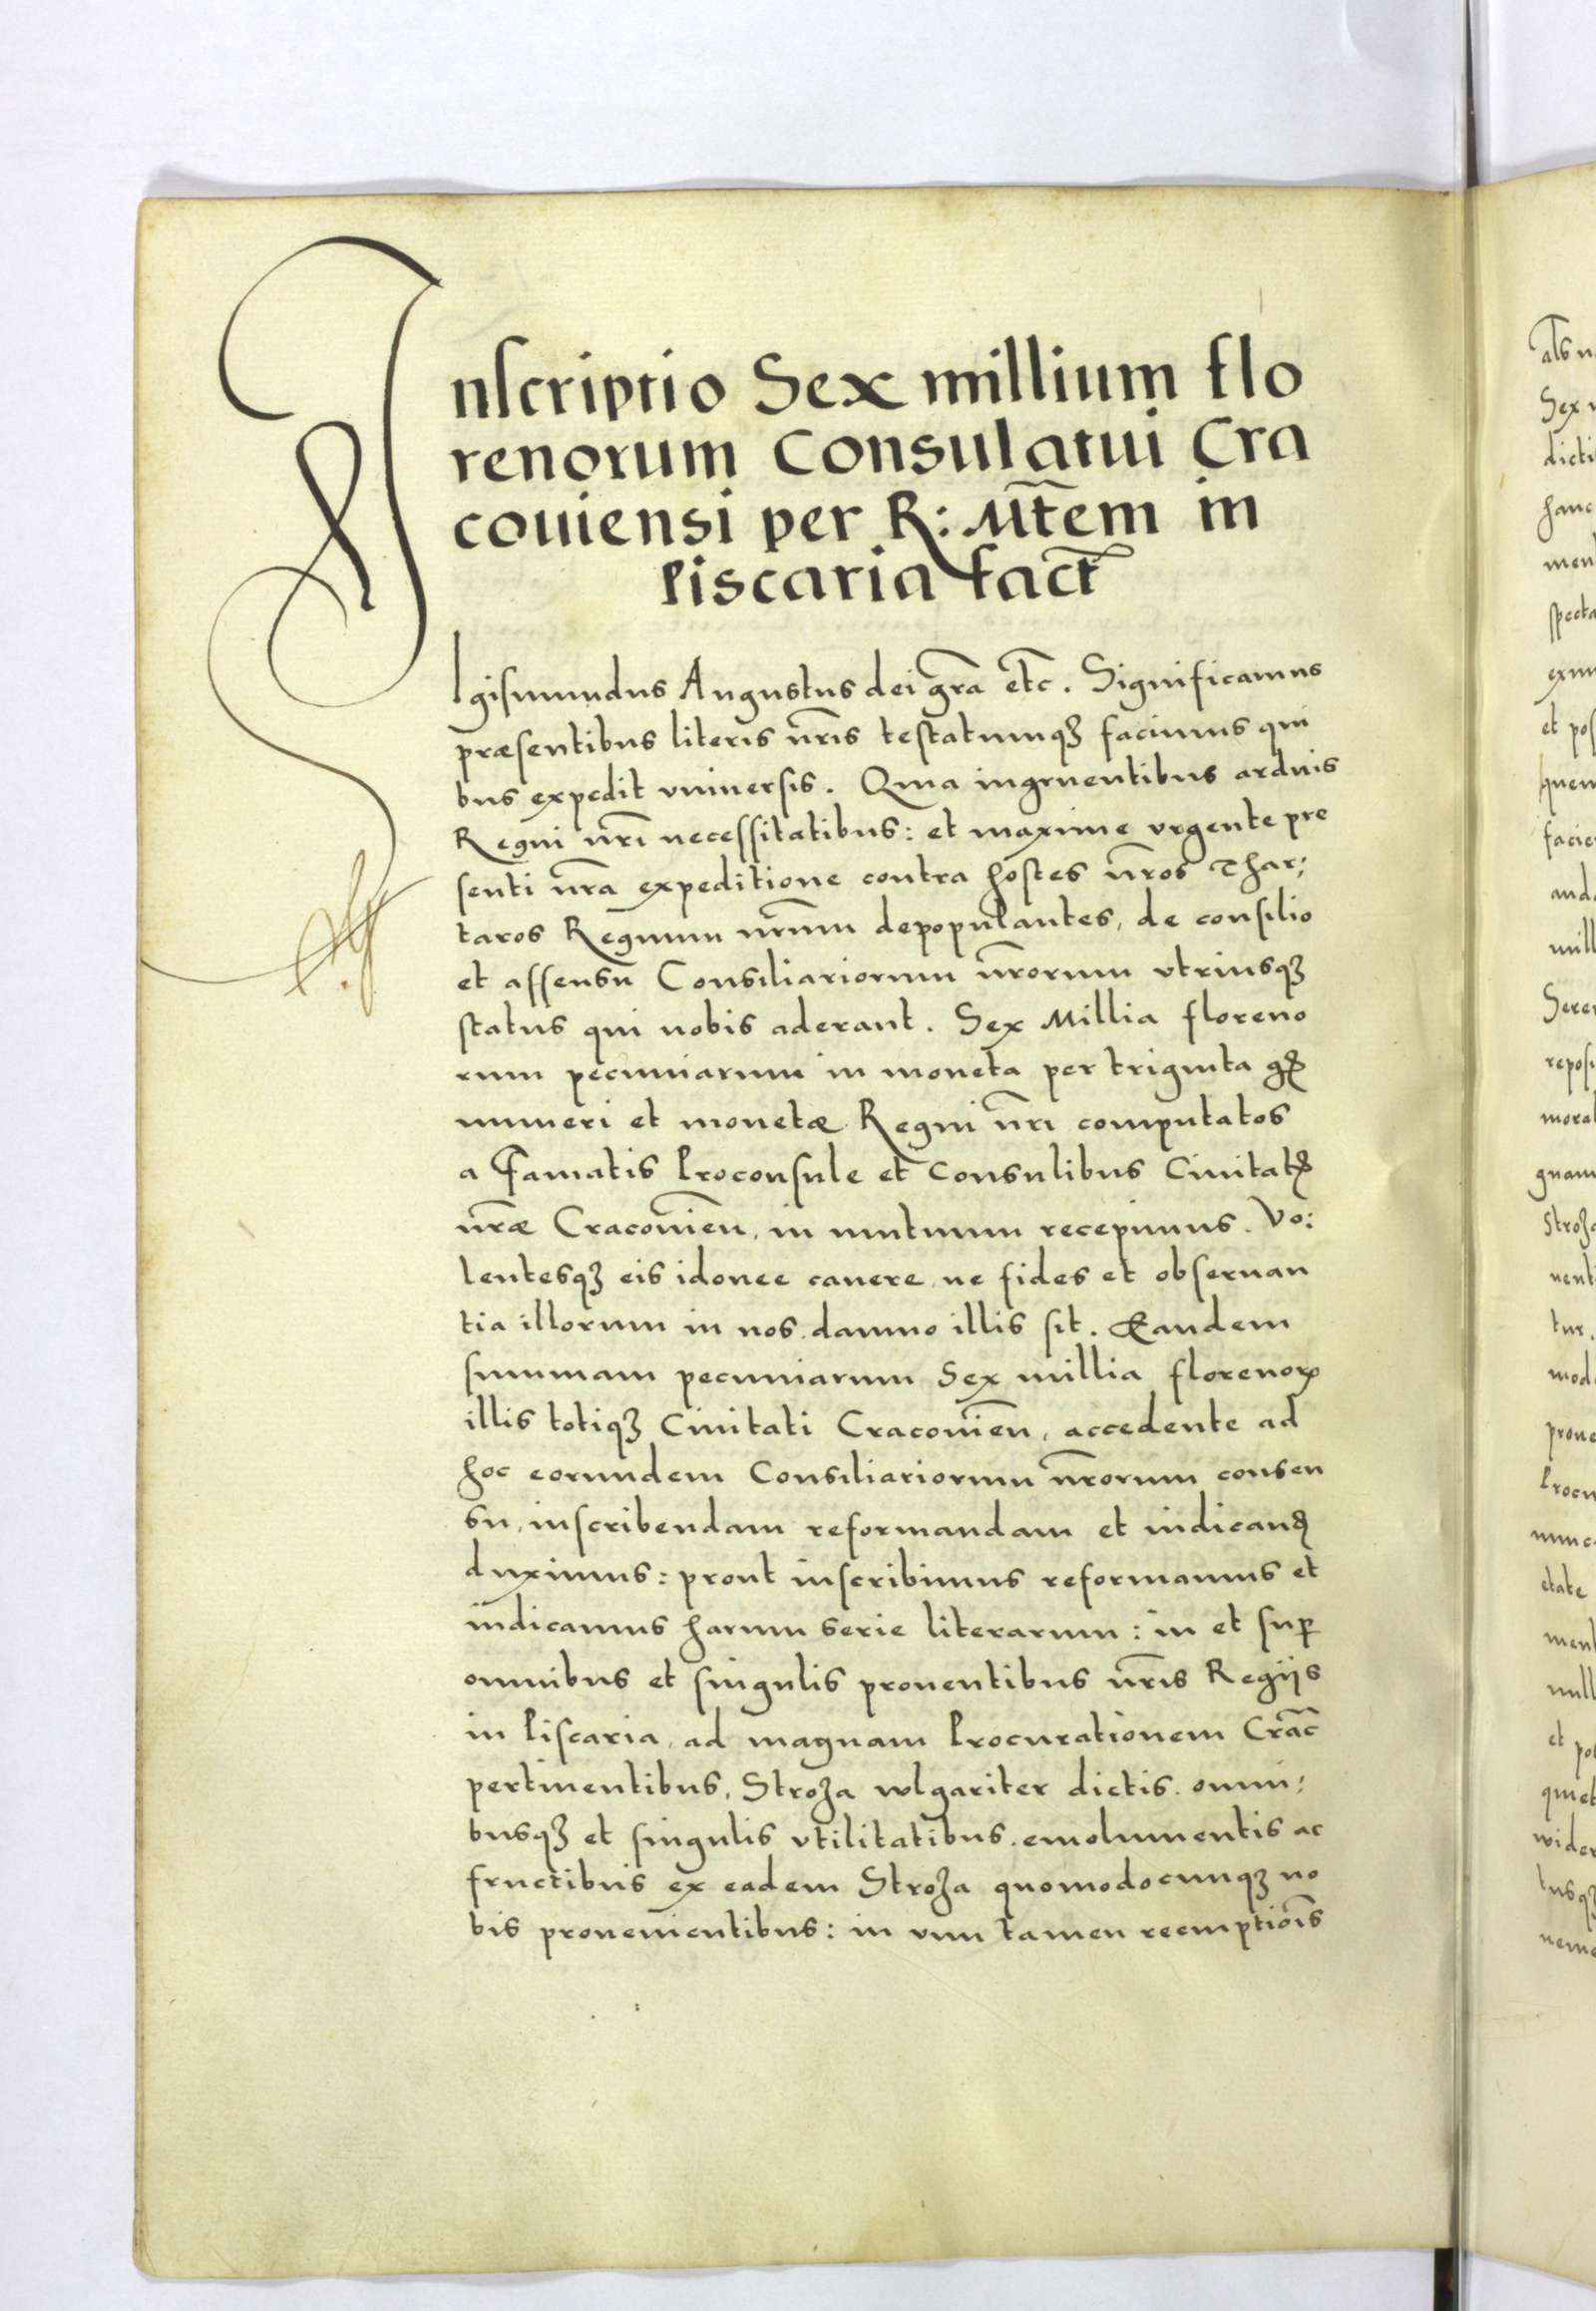 Inscriptio Sex millium flo
renorum Consulatui Cra
couiensi per R: Mt̃em in
Piscaria fact̃
Igismundus Augustus dei gr̃a et̃c. Significamus
præsentibus literis nr̃is testatumqꝫ facimus qui
bus expedit vniuersis. Quia ingruentibus arduis
Regni nr̃i necessitatibus: et maxime vrgente pre
senti nr̃a expeditione contra hostes nr̃os Thar;
taros Regnum nr̃um depopulantes, de consilio
et assensu Consiliariorum nr̃orum vtriusqꝫ
status qui nobis aderant. Sex Millia floreno
rum pecuniarum in moneta per triginta gꝶ
numeri et monetæ Regni nr̃i computatos
a Famatis Proconsule et Consulibus Ciuitatꝭ
nr̃æ Cracouien̄, in mutuum recepimus. Vo:
lentesqꝫ eis idonee cauere ne fides et obseruan
tia illorum in nos damno illis sit. Eandem
summam pecuniarum Sex millia florenoꝝ
illis totiqꝫ Ciuitati Cracouien̄, accedente ad
hoc eorundem Consiliariorum nr̃orum consen
su, inscribendam reformandam et indicanꝺ
duximus: prout inscribimus reformamus et
indicamus harum serie literarum: in et suꝑ
omnibus et singulis prouentibus nr̃is Regijs
in Piscaria, ad magnam Procurationem Crac̃
pertinentibus, Stroża wlgariter dictis. omni:
busqꝫ et singulis vtilitatibus. emolumentis ac
fructibus ex eadem Stroża quomodocunqꝫ no
bis prouenientibus: in vim tamen reemptiõis